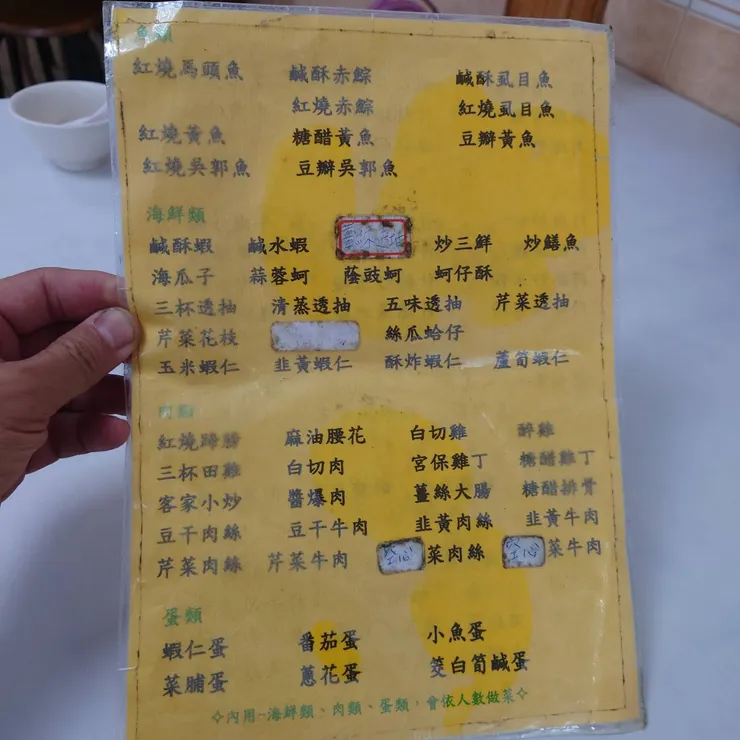 魚類
紅燒馬頭魚 鹹酥赤鯮 鹹酥虱目魚
紅燒赤鯮 紅燒虱目魚
紅燒黃魚 糖醋黃魚 豆瓣黃魚
紅燒吳郭魚 豆瓣吳郭魚
海鮮類
鹹酥蝦 鹹水蝦 炒三鮮 炒鱔魚
海瓜子 蒜蓉蚵 蔭豉蚵 蚵仔酥
三杯透抽 清蒸透抽 五味透抽 芹菜透抽
芹菜花枝 絲瓜蛤仔
玉米蝦仁 韭黃蝦仁 酥炸蝦仁 蘆筍蝦仁
肉類
紅燒蹄膀 麻油腰花 白切雞 醉雞
三杯田雞 白切肉 宮保雞丁 糖醋雞丁
客家小炒 醬爆肉 薑絲大腸 糖醋排骨
豆干肉絲 豆干牛肉 韭黃肉絲 韭黃牛肉
芹菜肉絲 芹菜牛肉 空心菜肉絲 空心菜牛肉
蛋類
蝦仁蛋 番茄蛋 小魚蛋
菜脯蛋 蔥花蛋 筊白筍鹹蛋
✧內用-海鮮類、肉類、蛋類，會依人數做菜✧